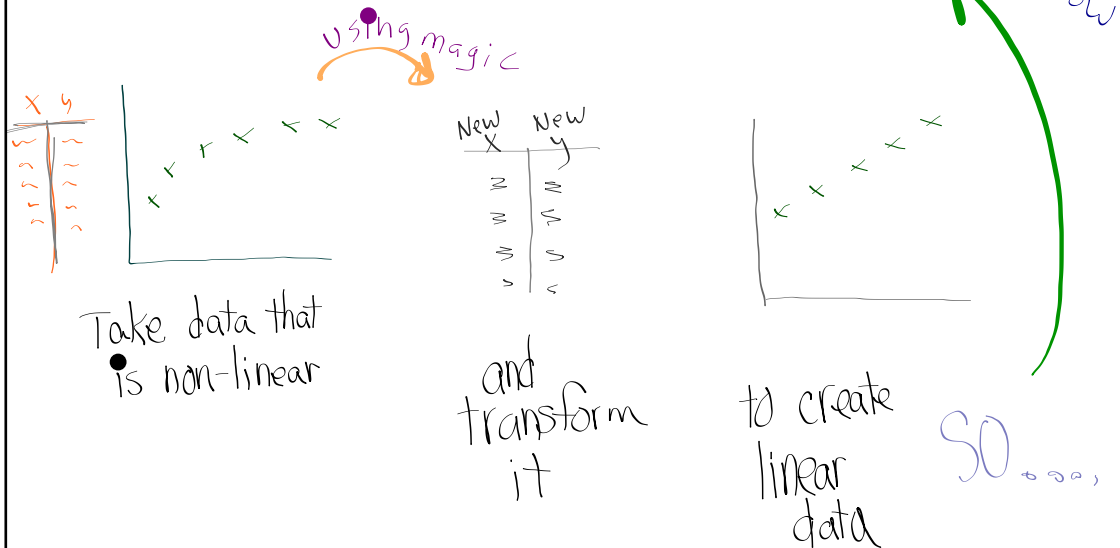 using magic
x y
New New
X y
Take data that
is non-linear
and
transform
it
to create
linear
data
SO....,